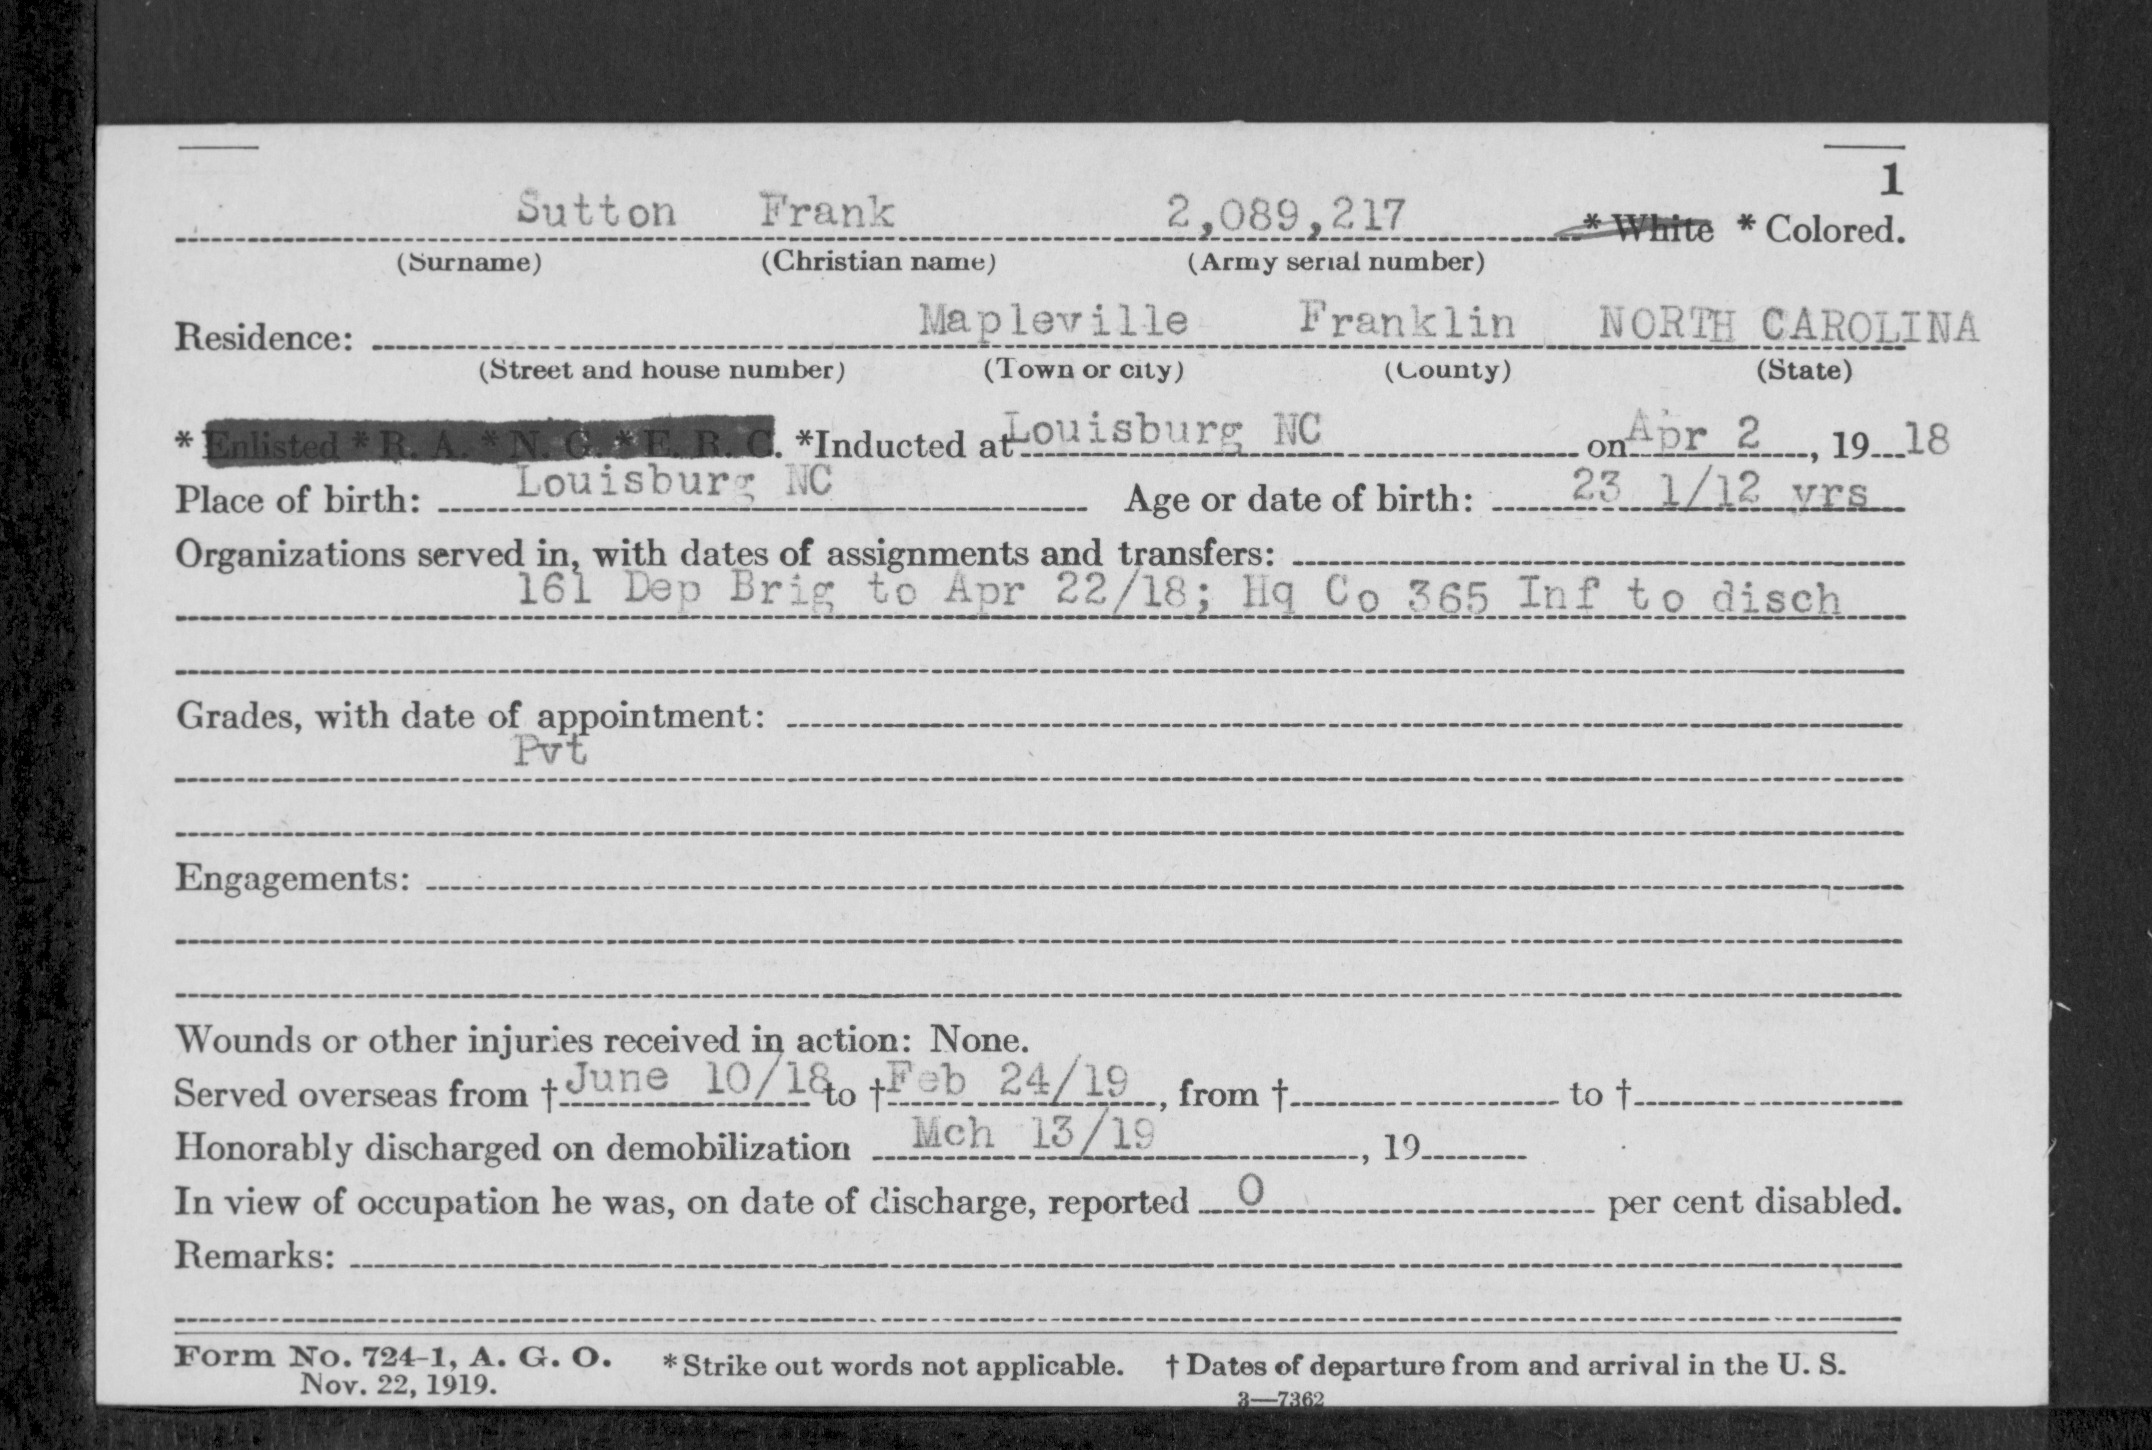 1
Sutton Frank 2,089,217 * White * Colored.
(Surname) (Christian name) (Army serial number)
Mapleville Franklin NORTH CAROLINA
Residence:
(Street and house number) (Town or city) (County) (State)
* Enlisted * R. A. * N. G. * E. R. C. *Inducted at Louisburg NC on Apr 2, 19 18
Place of birth: Louisburg NC Age or date of birth: 23 1/12 yrs
Organizations served in, with dates of assignments and transfers:
161 Dep Brig to Apr 22/18; Hq Co 365 Inf to disch
Grades, with date of appointment:
Pvt
Engagements:
Wounds or other injuries received in action: None.
Served overseas from † June 10/18 to † Feb 24/19, from † to †
Honorably discharged on demobilization Mch 13/19, 19
In view of occupation he was, on date of discharge, reported 0 per cent disabled.
Remarks:
Form No. 724-1, A. G. O. * Strike out words not applicable. † Dates of departure from and arrival in the U. S.
Nov. 22, 1919.
3—7362